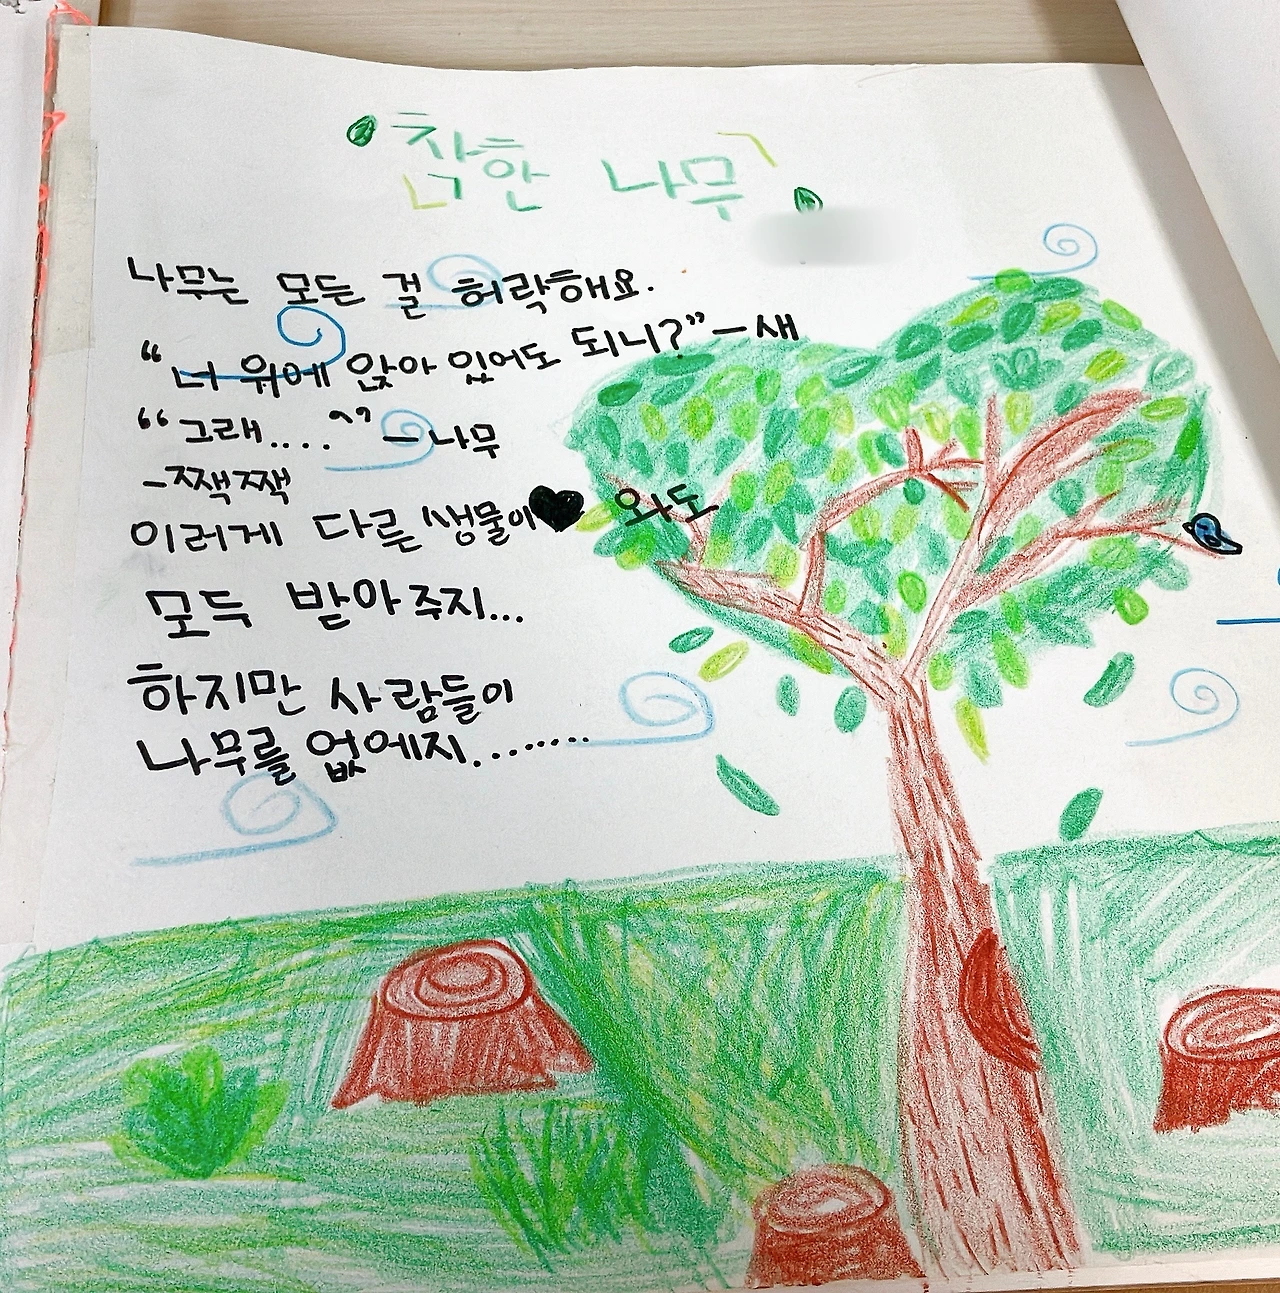 착한 나무
나무는 모든 걸 허락해요.
“너 위에 앉아 있어도 되니?” - 새
“그래....” - 나무
- 짹짹
이러게 다른 생물이♥와도
모두 받아주지...
하지만 사람들이
나무를 없에지.......